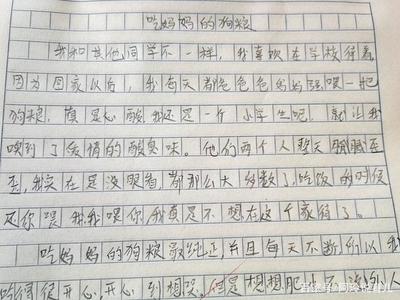 吃妈妈的狗粮
我和其他同学不一样，我喜欢在学校待着，
因为回家以后，我每天都爸爸妈妈强喂一把
狗粮，真是心酸，我还是一个小学生吧，就让我
嗅到了爱情的酸臭味。他们两个人整天腻腻歪
歪，我实在是没眼看，都那么大岁数了，吃饭的时候
还你喂我，我喂你，我真是不想在这个家待了。
吃妈妈的狗粮最纯正，并且每天不断所以我
吃得很开心，开心到想哭。但是想想肥水不流外人